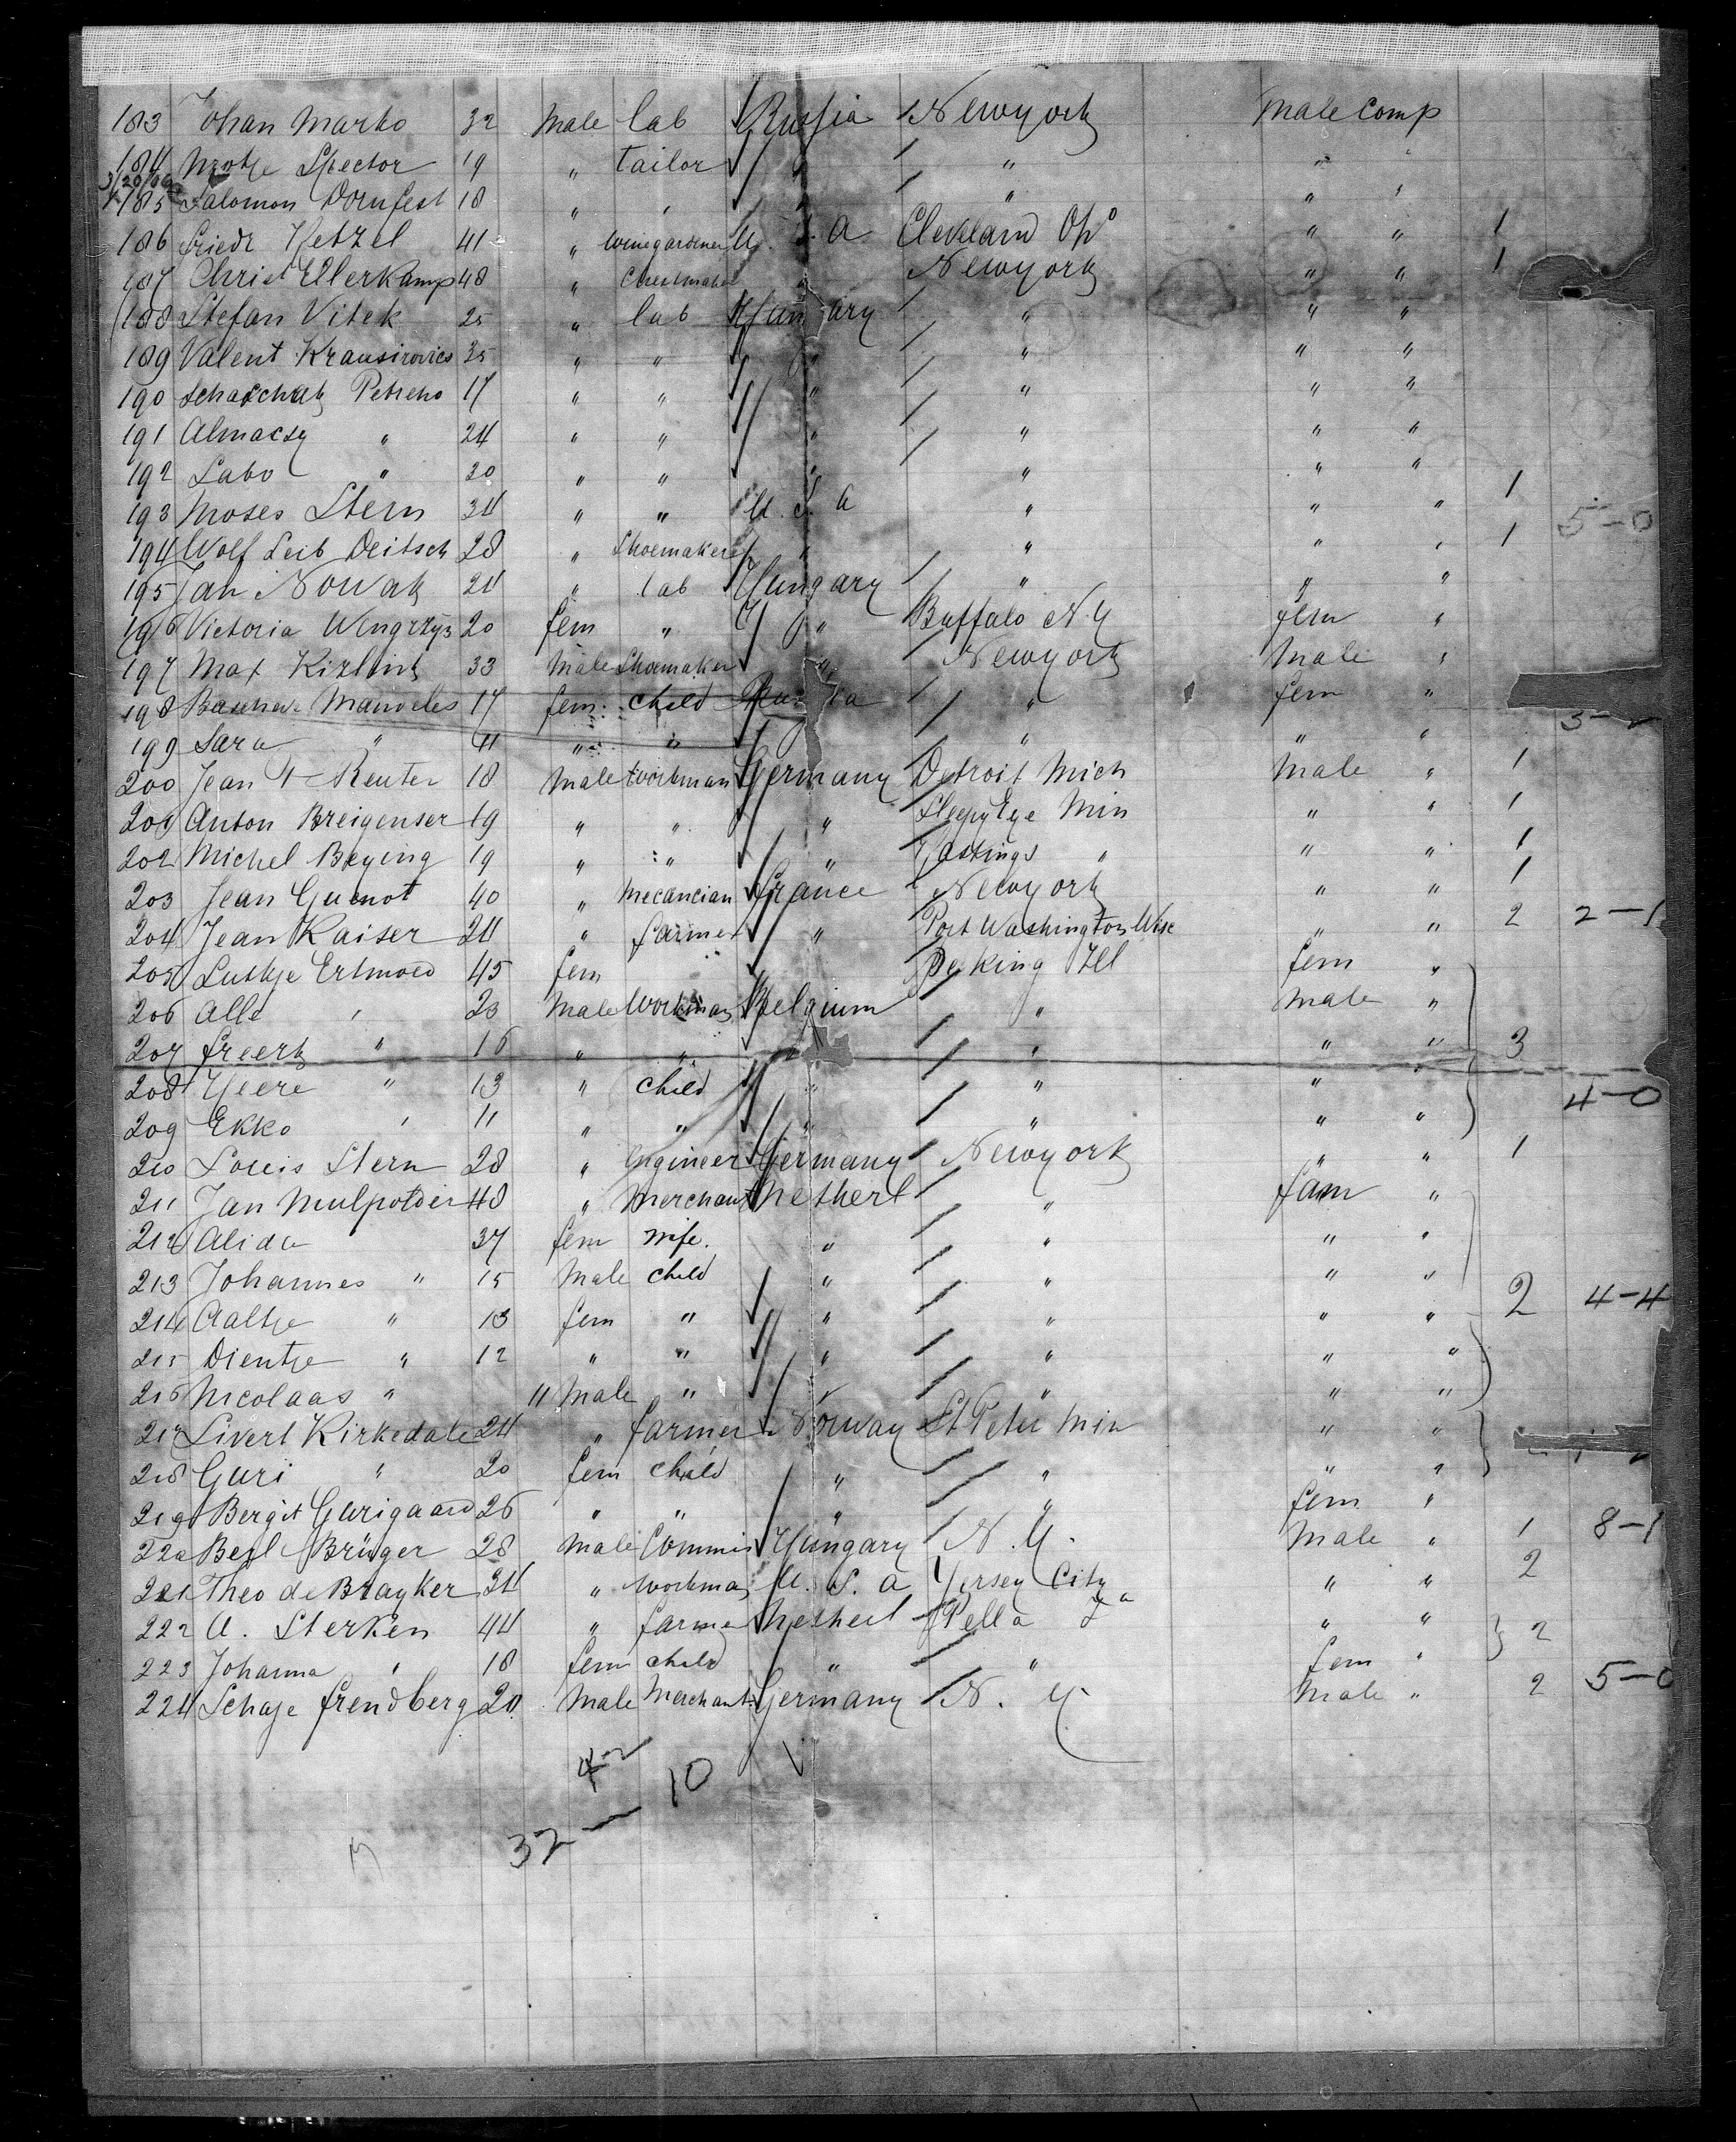 183 Johan Marko 32 Male lab Russia Newyork Male Comp
184 Motje Spector 19 " tailor " " " "
3/20/06
185 Salomon Dornfest 18 " " " " " "
186 Friedr Hetzel 41 " winegardener U. S. a Cleveland Oho " " 1
187 Christ Ellerkamp 48 " " Newyork " " 1
188 Stefan Vitek 25 " lab Hungary " " "
189 Valent Krausirovics 35 " " " " " "
190 Petreno 17 " " " " " "
191 Almacsy " 24 " " " " " "
192 Labo " 30 " " " " " "
193 Moses Stern 34 " " U. S. a " " " 1 5-0
194 Wolf Leib Deitsch 28 " Shoemaker " " " " 1
195 Jan Nowak 24 " lab Hungary " " "
196 Victoria Wengrzyn 20 fem " " Buffalo N.Y fem "
197 Max Kizlink 33 Male Shoemaker " Newyork Male "
198 Manoeles 17 fem child Russia " fem "
199 Sara " 11 " " " " "
200 Jean Reuter 18 Male workman Germany Detroit Mich Male " 1
201 Anton Breigenser 19 " " " Sleepy Eye Min " " 1
202 Michel Beying 19 " " " Hastings " " " 1
203 Jean Guenot 40 " mecancian France Newyork " " 1
204 Jean Kaiser 24 " farmer " Port Washington Wisc " " 2 2-1
205 Lutkje Ertmoed 45 fem Peking Ill fem "
206 Alle " 23 Male Workman Belgium " Male "
207 Freerk " 16 " " " " " 3
208 Heere " 13 " child " " " 4-0
209 Ekko " 11 " " " " " "
210 Louis Stern 28 " Engineer Germany Newyork " " 1
211 Jan Mulpolder 48 " Merchant Netherl " fam "
212 Alida 37 fem wife. " " " "
213 Johannes " 15 Male child " " " "
214 Aaltje " 13 fem " " " " " 2 4-4
215 Dientje " 12 " " " " " "
216 Nicolaas " 11 Male " " " " "
217 Sivert Kirkedale 24 " farmer Norway St Peter Min " "
218 Guri " 20 fem child " " " "
219 Bergit Gurigaard 26 " " " " fem "
220 Berl Brüger 28 Male Commis Hungary N.Y. Male " 1 8-1
221 Theo de Brayker 34 " workman U. S. a Jersey City " " 2
222 A. Sterken 44 " farmer Netherl Pella Ia " " 2
223 Johanna " 18 fem child " " fem "
224 Schaje Frendberg 20 Male Merchant Germany N. Y. Male " 2 5-0
10
32